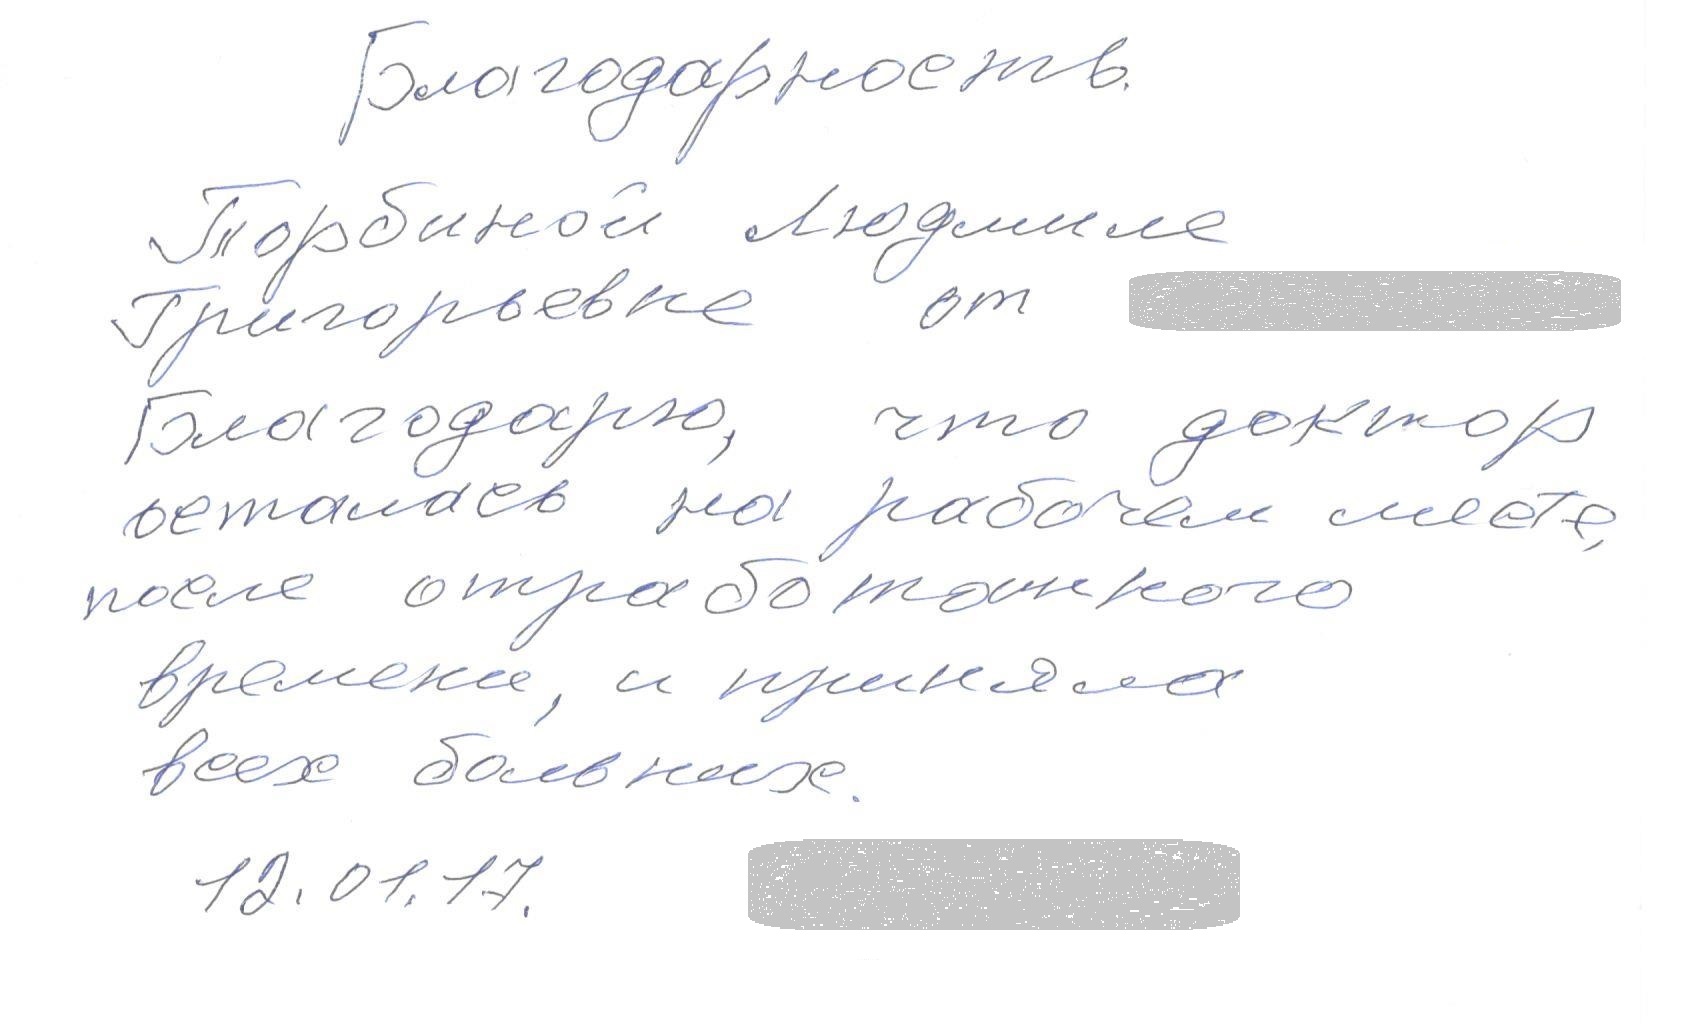 Благодарность.
Торбиной Людмиле
Григорьевне от
Благодарю, что доктор
осталась на рабочем месте,
после отработанного
времени, и приняла
всех больных.
12.01.17.